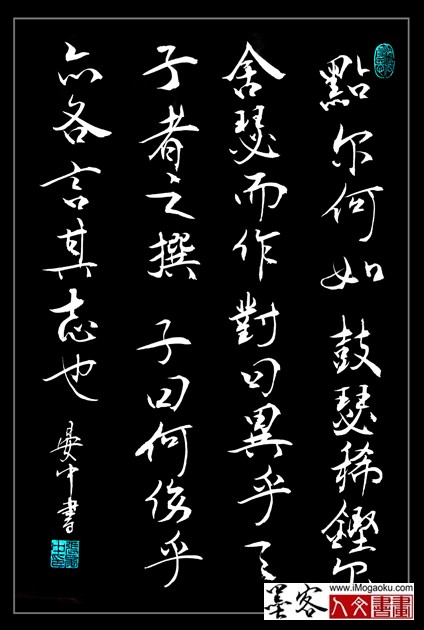 點尔何如鼓瑟稀鏗尔
舍瑟而作對曰異乎三
子者之撰 子曰何傷乎
亦各言其志也
晏中書
墨客
www.iMogaoku.com
人文書畫